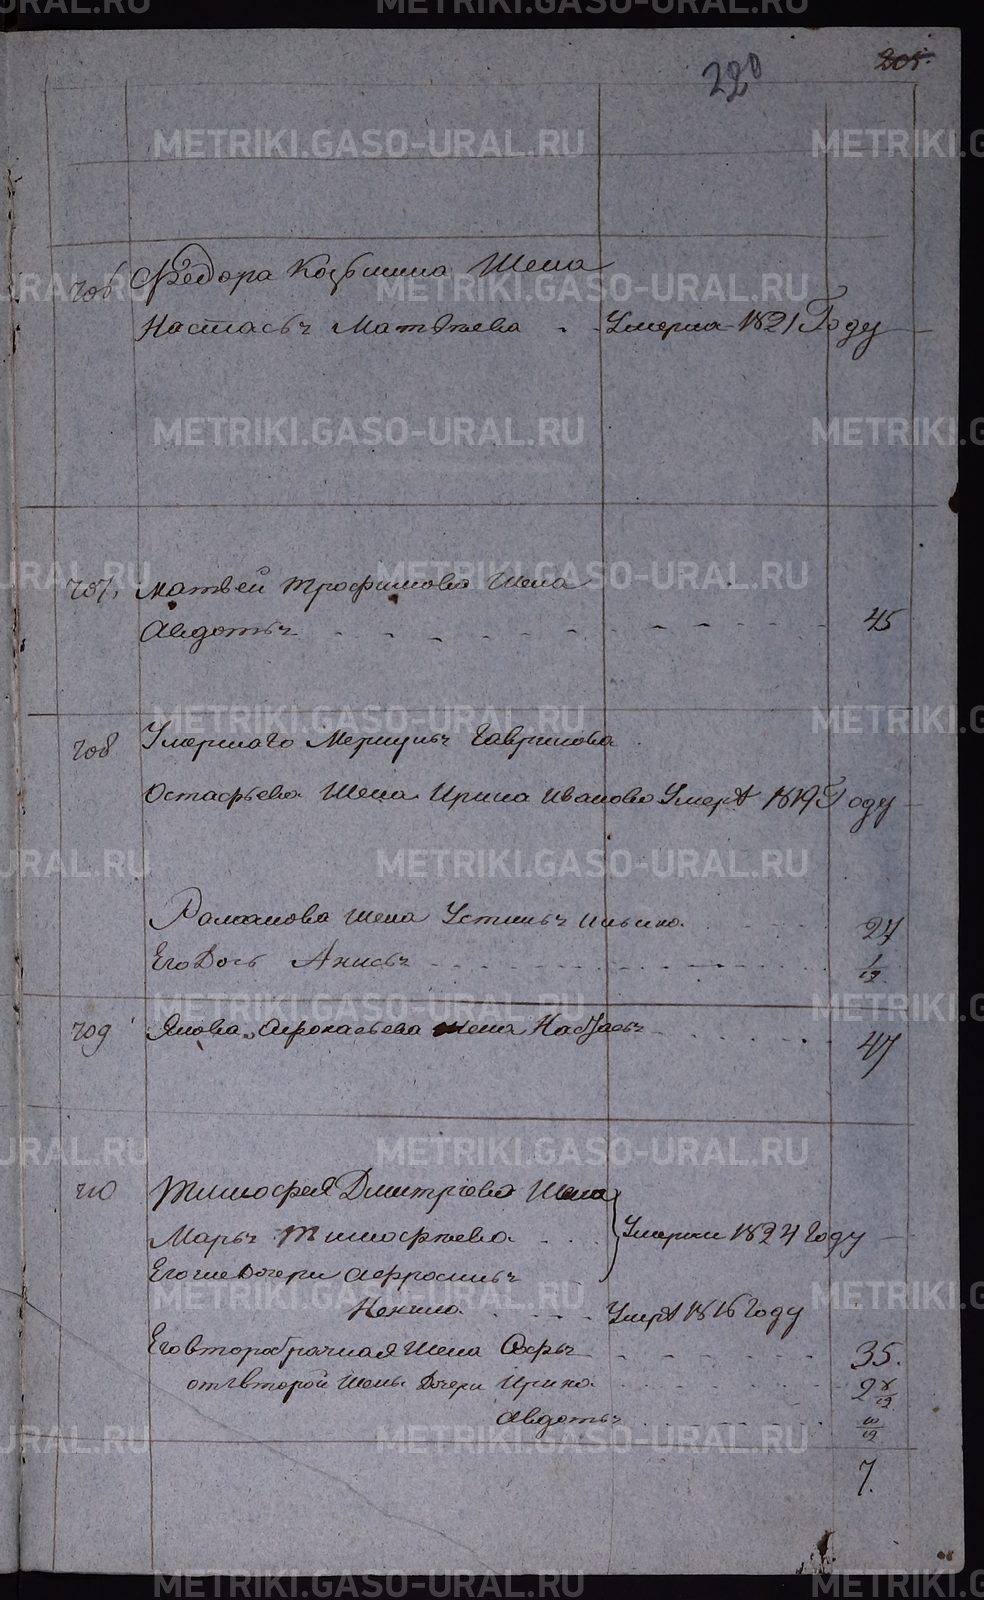 220 205.
706 Федора Козьмина Жена
Настасья Матвѣева Умерла 1821 Году
707. Матвей Трофимова Жена
Авдотья 45
708 Умершаго Меркулья Гаврилова
Остафьева Жена Ирина Иванова Умер. 1819 Году
Романова жена Устинья Ильина 24
Его Дочь Анисья 1/12
709 Якова Афонасьева жена Настасья 47
710 Тимофея Дмитріева Жена
Марья Тимофѣева Умерли 1824 Году
Его же Дочери Афросинья
Ненила Умер. 1816 Году
Его второбрачная Жена Софья 35.
от второй Жены Дочери Ирина 2 8/12
Авдотья 10/12
7.
METRIKI.GASO-URAL.RU